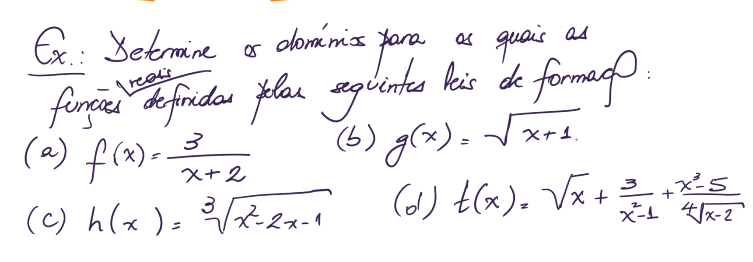 Ex.: Determine os domínios para os quais as
funções reais definidas pelas seguintes leis de formaçã:
(a) f(x) = 3/(x+2) (b) g(x) = √(x+1).
(c) h(x) = ∛(x²-2x-1) (d) t(x) = √x + 3/(x²-1) + (x³-5)/∜(x-2)